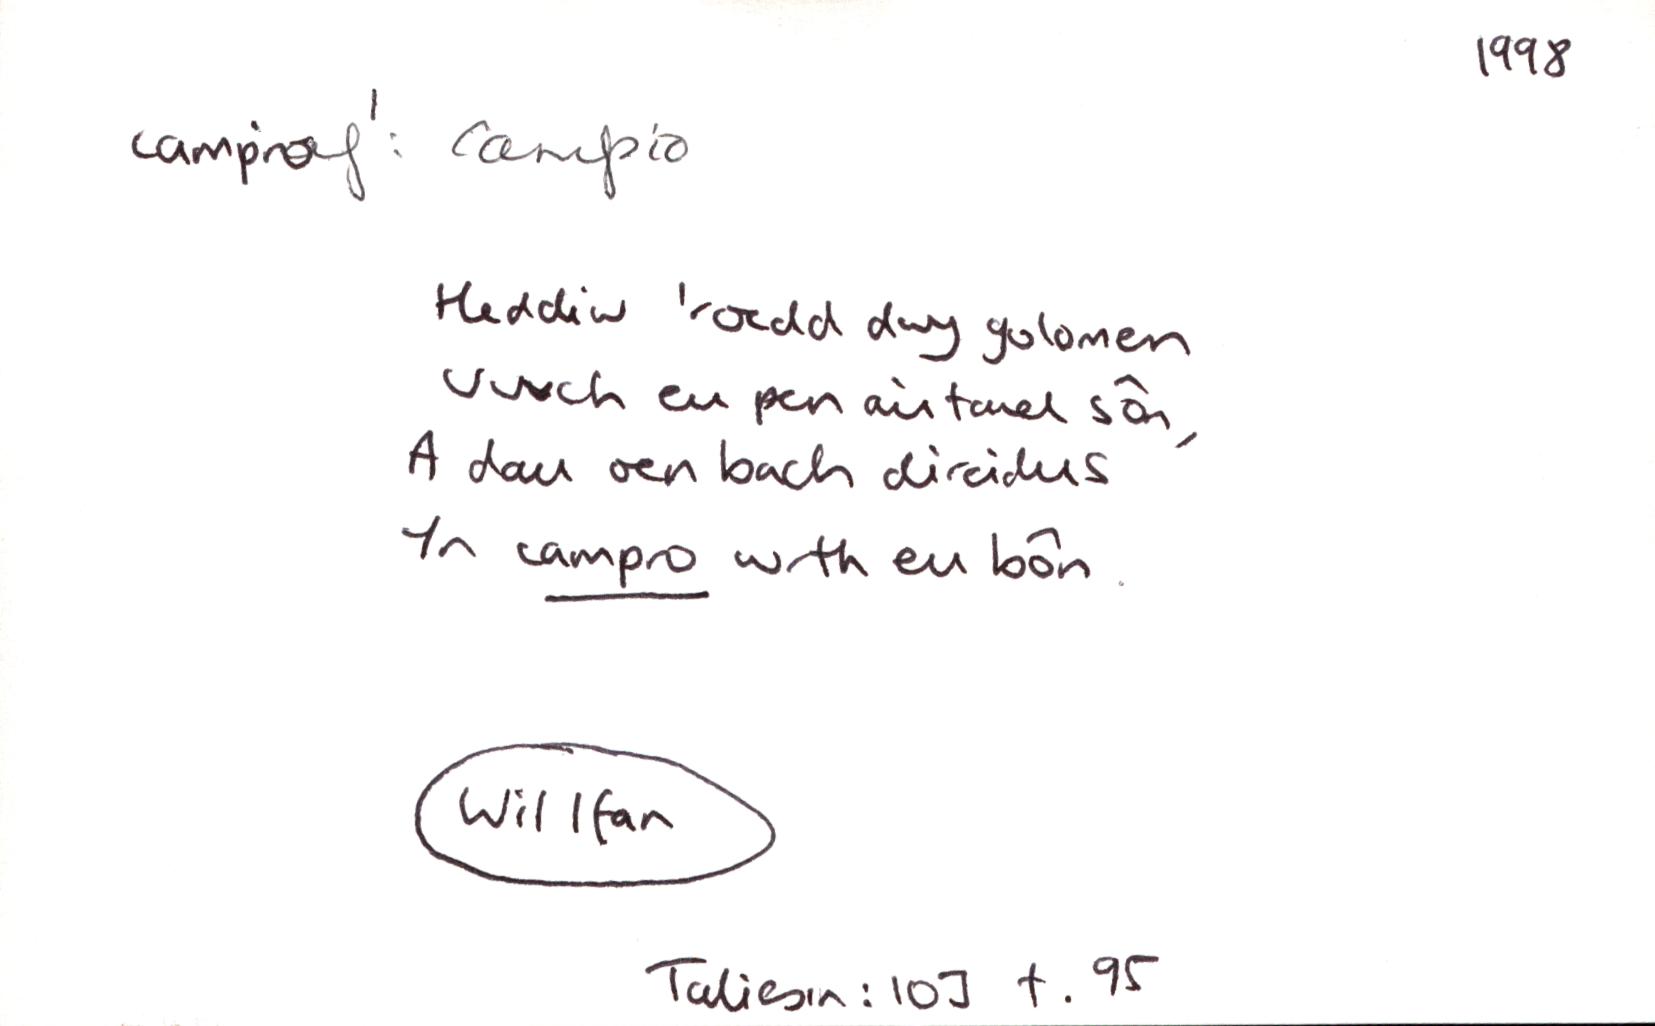 1998
campraf¹: campio
Heddiw 'roedd dwy golomen
Uwch eu pen a'u tawel sôn,
A dau oen bach direidus
Yn campro wrth eu bôn.
Wil Ifan
Taliesin: 103 t. 95